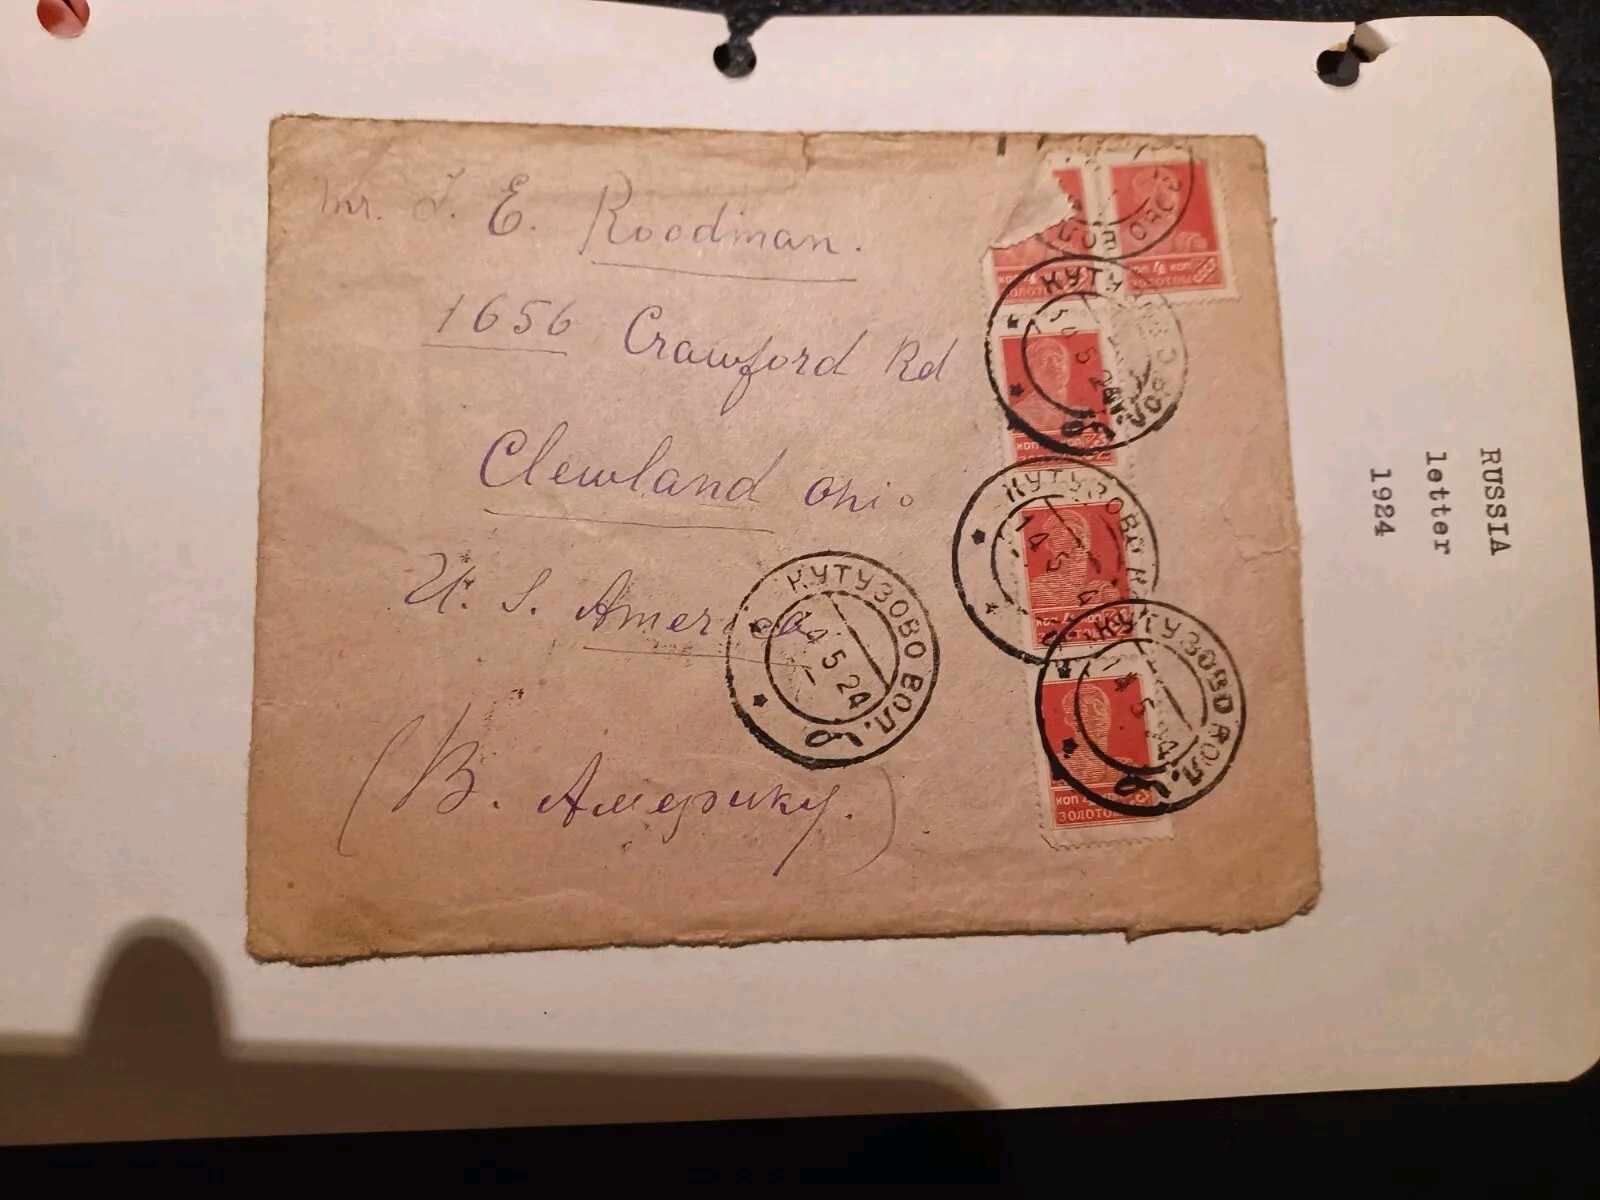 Mr. J. E. Roodman.
1656 Crawford Rd
Clewland ohio
U. S. America
(В. Америку.)
КУТУЗОВО ВОЛ.
14 5 24
КУТУЗОВО ВОЛ.
5 24
КУТУЗОВО
14 5
КУТУЗОВО ВОЛ.
14 5
КОП 4 КОП
ЗОЛОТОМ
КОП 4 КОП
ЗОЛОТОМ
RUSSIA
letter
1924